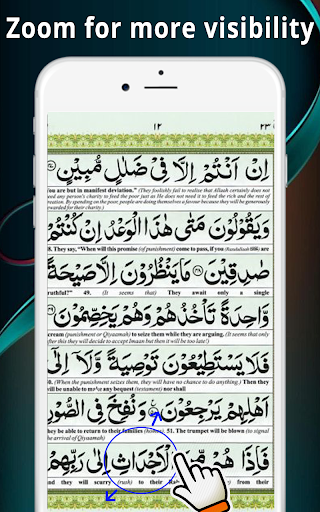 Zoom for more visibility
١٢ ٢٣
اِنْ اَنْتُمْ اِلَّا فِیْ ضَلٰلٍ مُّبِیْنٍ
ou are but in manifest deviation." (They foolishly fail to realise that Allaah certainly does not need any person's charity to feed the poor just as He does not need it to feed the rich and the rest of creation. By spending on the poor people are doing themselves a favour because they will be generously rewarded for their charity.)
وَیَقُوْلُوْنَ مَتٰی هٰذَا الْوَعْدُ اِنْ كُنْتُمْ
8. They say, "When will this promise (of punishment) come to pass, if you are
صٰدِقِیْنَ مَا یَنْظُرُوْنَ اِلَّا صَیْحَةً
ruthful?" 49. (It seems that) They await only a single
وَّاحِدَةً تَاْخُذُهُمْ وَهُمْ یَخِصِّمُوْنَ
cream (punishment or Qiyaamah) to seize them while they are arguing. (It seems that only after this they will decide to accept Imaan but then it will be too late!)
فَلَا یَسْتَطِیْعُوْنَ تَوْصِیَةً وَّلَاۤ اِلٰۤی
0. (When the punishment seizes them, they will have no chance to do anything.) Then they will be unable to make any bequest (testament) nor shall
اَهْلِهِمْ یَرْجِعُوْنَ وَنُفِخَ فِی الصُّوْرِ
hey be able to return to their families (homes). 51. The trumpet will be blown (to signal he arrival of Qiyaamah)
فَاِذَا هُمْ مِّنَ الْاَجْدَاثِ اِلٰی رَبِّهِمْ
nd they will scurry (rush) to their Rabb (rush) from their graves